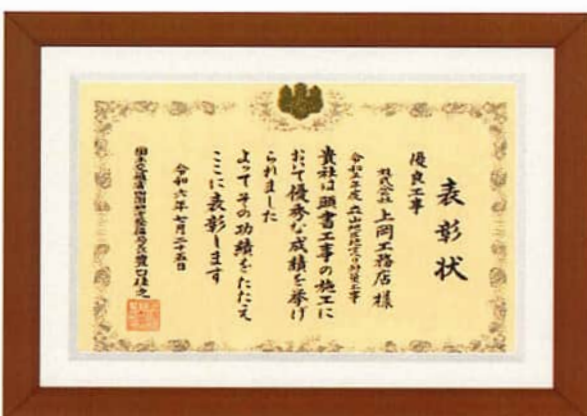 表彰状
優良工事
株式会社 上岡工務店 様
令和五年度
貴社は頭書工事の施工に
おいて優秀な成績を挙げ
られました
よってその功績をたたえ
ここに表彰します
令和六年七月二十五日
国土交通省四国地方整備局長